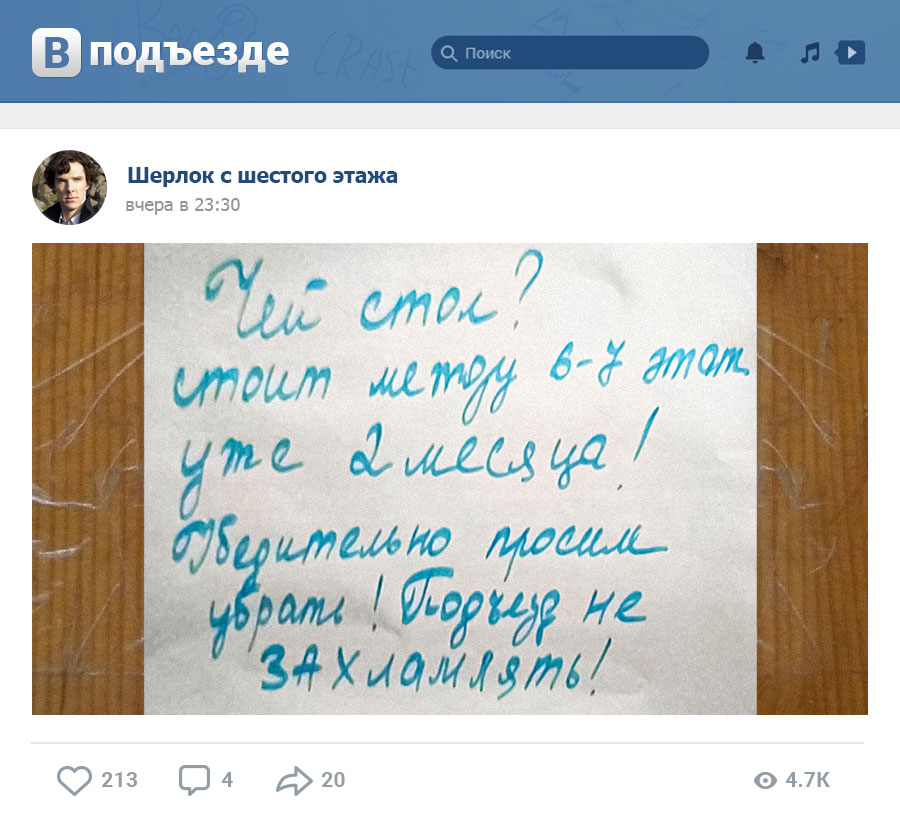 В подъезде
CRASt
Поиск
Шерлок с шестого этажа
вчера в 23:30
Чей стол?
стоит между 6-7 этаж
уже 2 месяца!
Убедительно просим
убрать! Подъезд не
ЗАХламлять!
213 4 20 4.7K